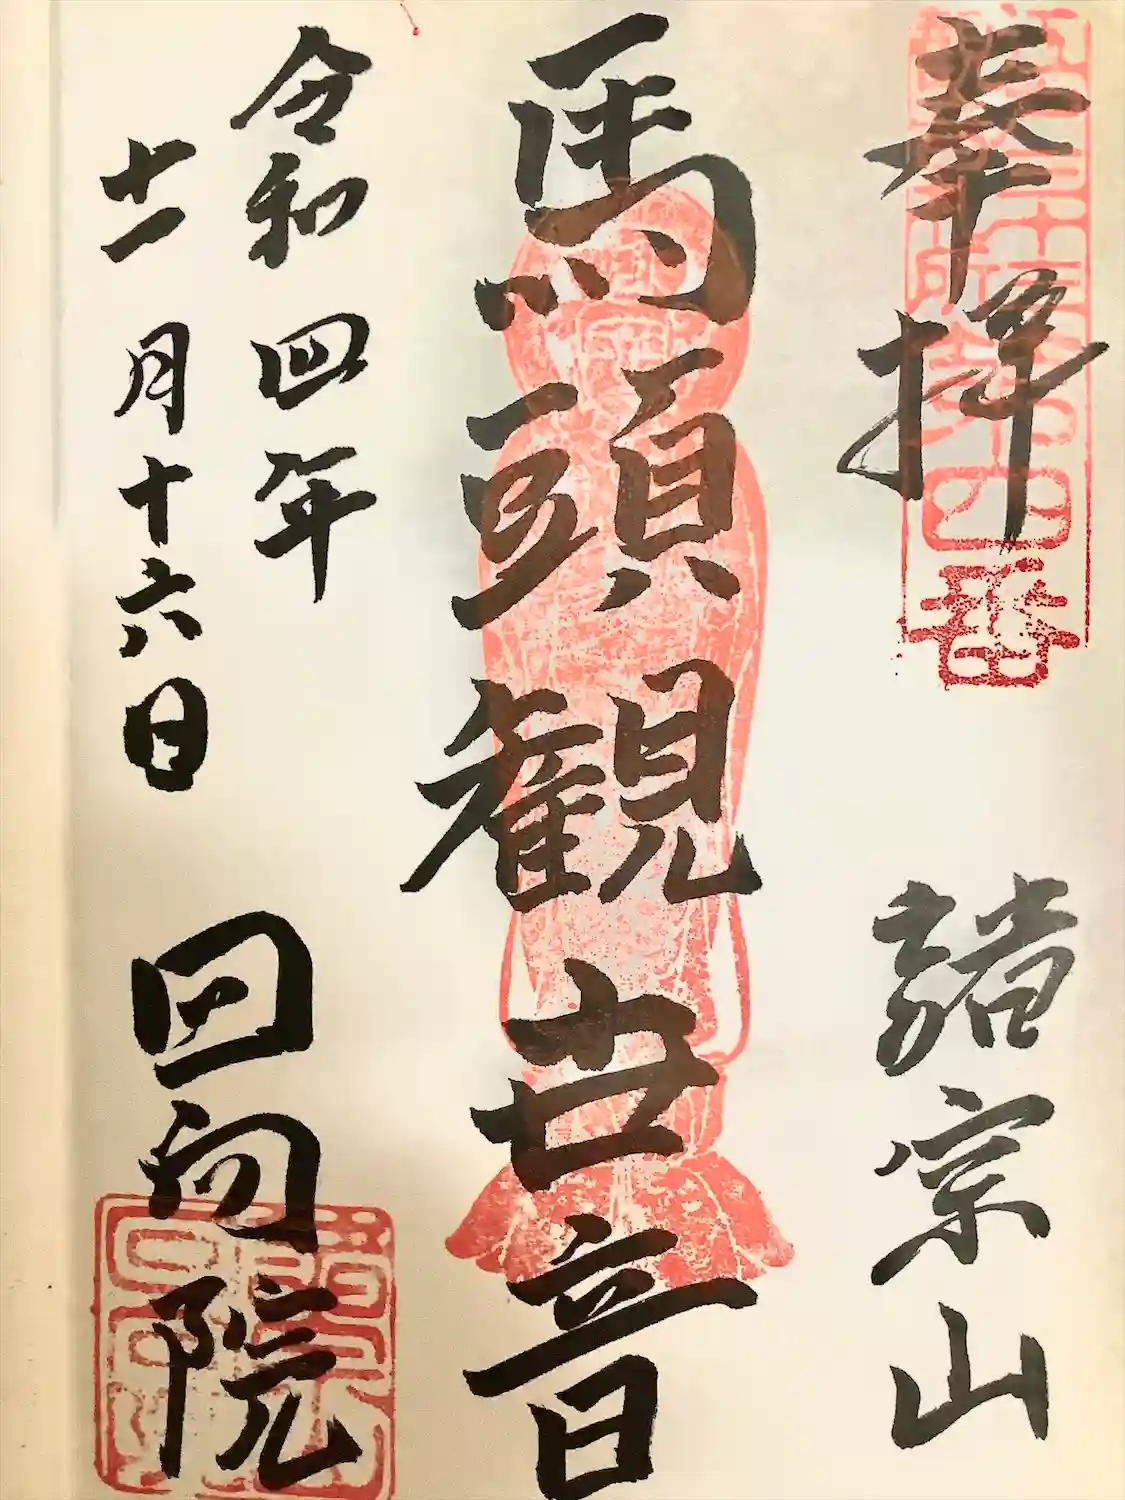 奉拝
諸宗山
馬頭観世音
令和四年
十一月十六日
回向院
第四番